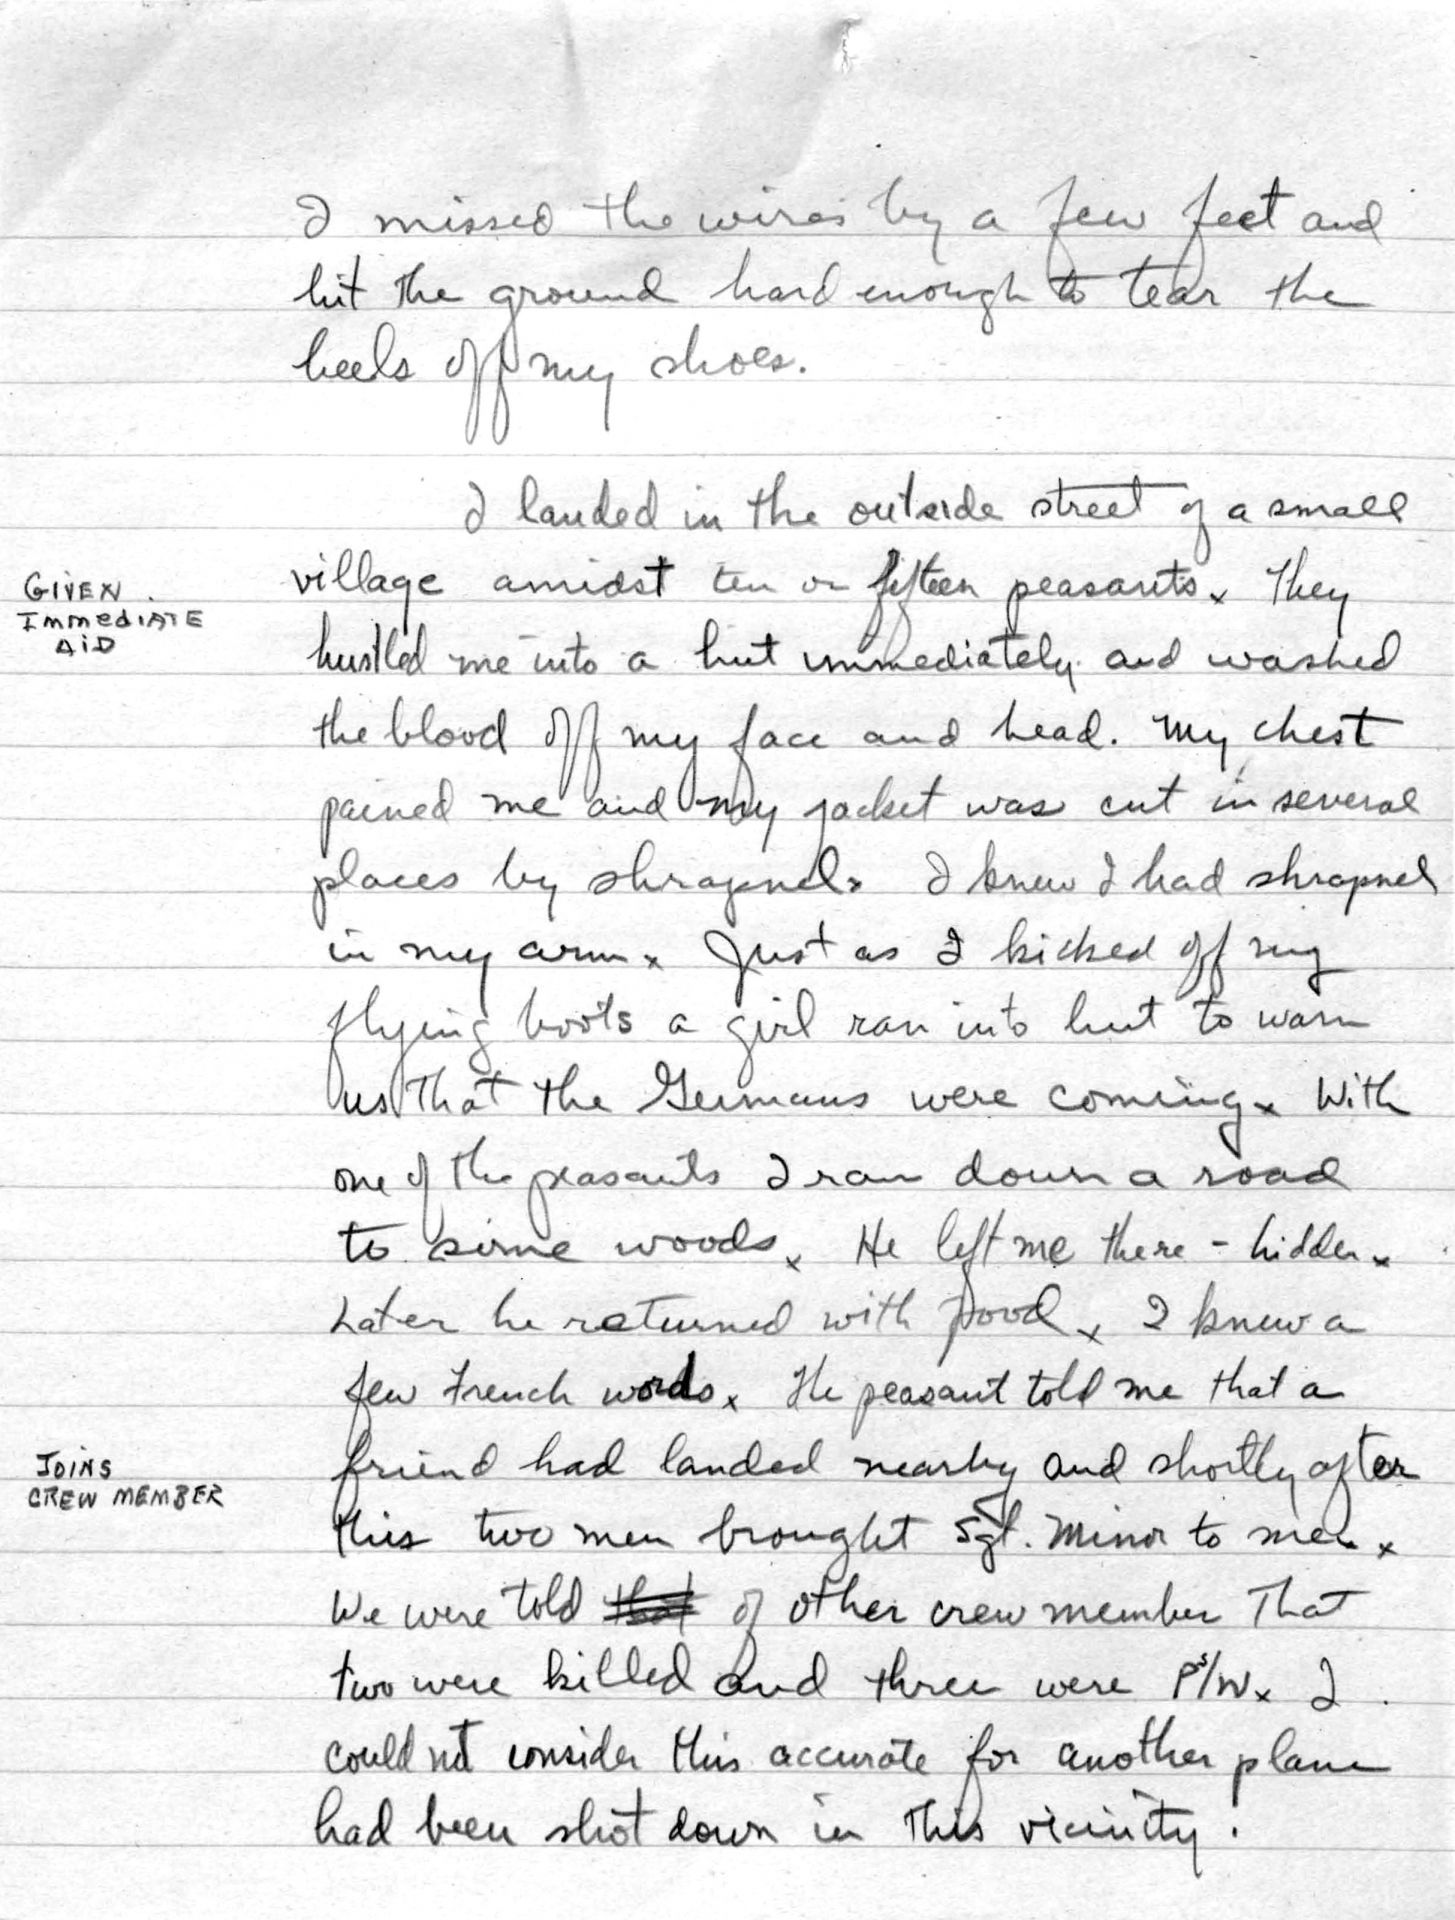 I missed the wires by a few feet and
hit the ground hard enough to tear the
heels off my shoes.
I landed in the outside street of a small
GIVEN
IMMEDIATE
AID
village amidst ten or fifteen peasants x They
hustled me into a hut immediately and washed
the blood off my face and head. My chest
pained me and my jacket was cut in several
places by shrapnel x I knew I had shrapnel
in my arm x Just as I kicked off my
flying boots a girl ran into hut to warn
us that the Germans were coming x With
one of the peasants I ran down a road
to some woods x He left me there - hidden x
Later he returned with food x I knew a
few French words x The peasant told me that a
JOINS
CREW MEMBER
friend had landed nearby and shortly after
this two men brought Sgt. Minor to me x
We were told that of other crew member that
two were killed and three were Ps/W x I
could not consider this accurate for another plane
had been shot down in this vicinity.